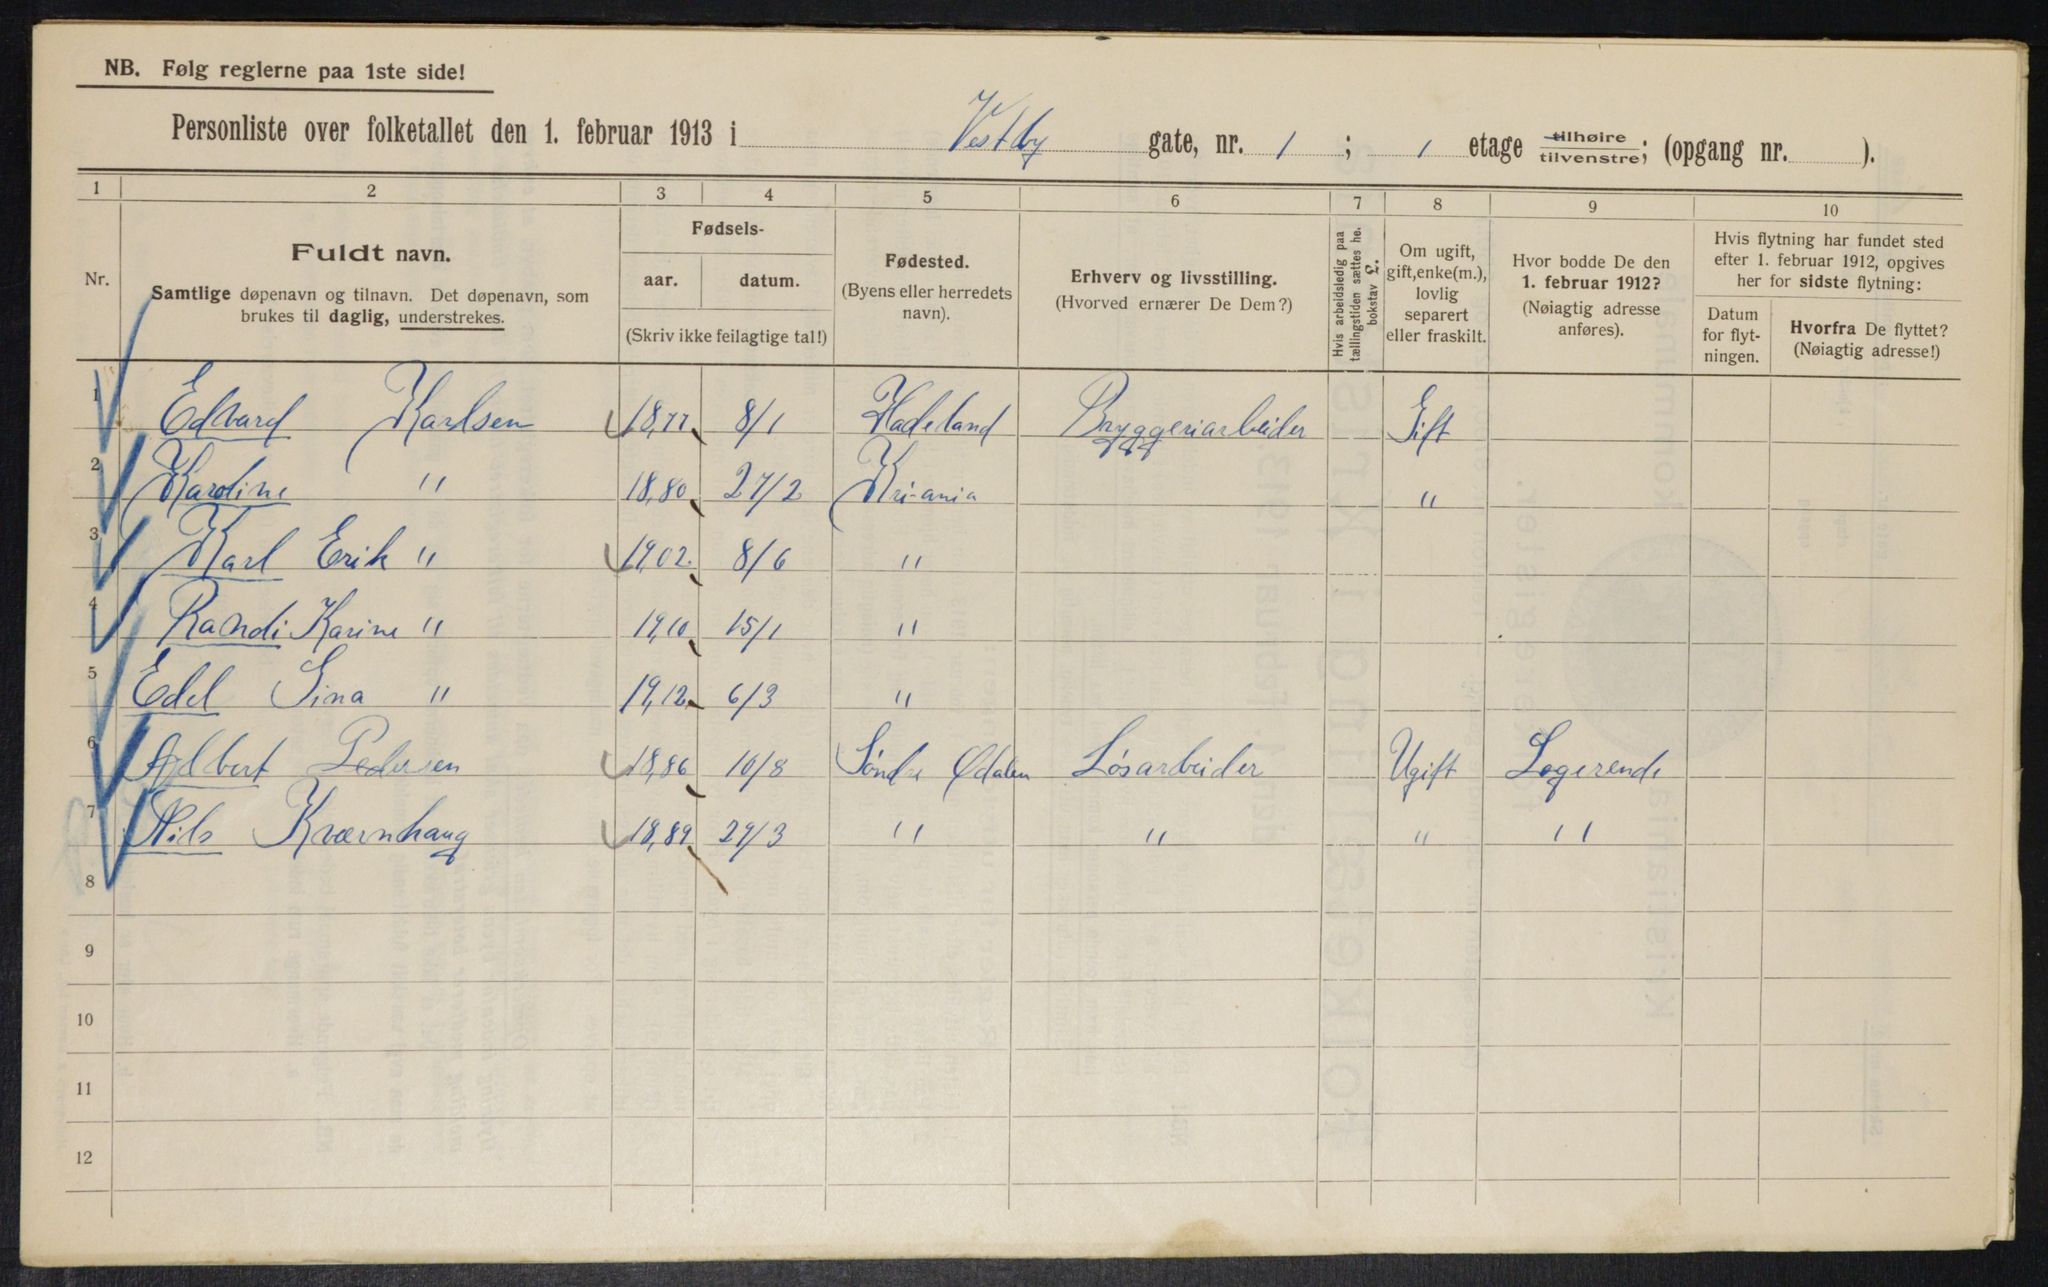 NB. Følg reglerne paa 1ste side!
Personliste over folketallet den 1. februar 1913 i Vestby gate, nr. 1 ; 1 etage tilhøire/tilvenstre; (opgang nr. ).
1 2 3 4 5 6 7 8 9 10
Nr.
Fuldt navn.
Samtlige døpenavn og tilnavn. Det døpenavn, som
brukes til daglig, understrekes.
Fødsels-
aar. datum.
(Skriv ikke feilagtige tal!)
Fødested.
(Byens eller herredets
navn).
Erhverv og livsstilling.
(Hvorved ernærer De Dem?)
Hvis arbeidsledig paa
tællingstiden sættes he.
bokstav L.
Om ugift,
gift, enke(m.),
lovlig
separert
eller fraskilt.
Hvor bodde De den
1. februar 1912?
(Nøiagtig adresse
anføres).
Hvis flytning har fundet sted
efter 1. februar 1912, opgives
her for sidste flytning:
Datum
for flyt-
ningen.
Hvorfra De flyttet?
(Nøiagtig adresse!)
1 Edvard Karlsen 18,77 8/1 Hadeland Bryggeriarbeider Gift
2 Karoline " 18,80 27/2 Kri-ania "
3 Karl Erik " 19,02 8/6 "
4 Randi Karine " 19,10 15/1 "
5 Edel Gina " 19,12 6/3 "
6 Albert Pedersen 18,86 10/8 Søndre Odalen Løsarbeider Ugift Logerende
7 Nils Kværnhaug 18,89 29/3 " " " "
8
9
10
11
12